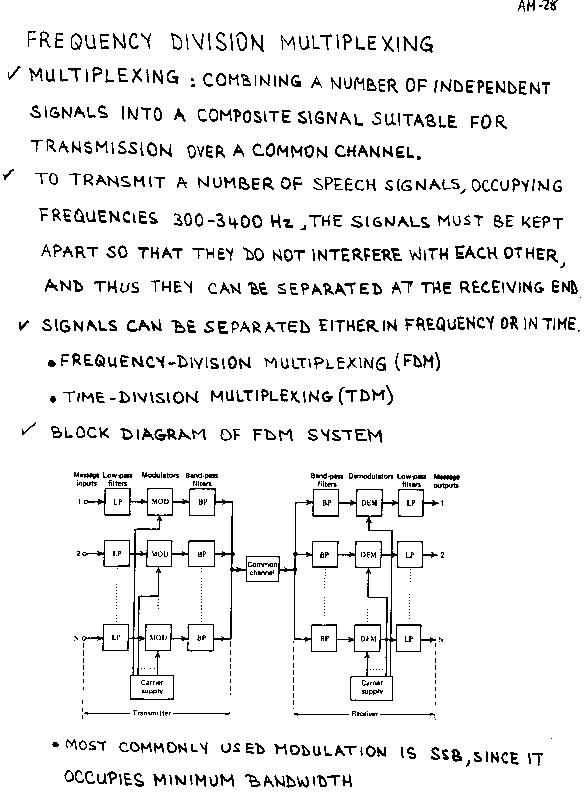 AM-28
FREQUENCY DIVISION MULTIPLEXING
✓ MULTIPLEXING : COMBINING A NUMBER OF INDEPENDENT
SIGNALS INTO A COMPOSITE SIGNAL SUITABLE FOR
TRANSMISSION OVER A COMMON CHANNEL.
✓ TO TRANSMIT A NUMBER OF SPEECH SIGNALS, OCCUPYING
FREQUENCIES 300-3400 Hz, THE SIGNALS MUST BE KEPT
APART SO THAT THEY DO NOT INTERFERE WITH EACH OTHER,
AND THUS THEY CAN BE SEPARATED AT THE RECEIVING END.
✓ SIGNALS CAN BE SEPARATED EITHER IN FREQUENCY OR IN TIME.
• FREQUENCY-DIVISION MULTIPLEXING (FDM)
• TIME-DIVISION MULTIPLEXING (TDM)
✓ BLOCK DIAGRAM OF FDM SYSTEM
Message inputs Low-pass filters Modulators Band-pass filters Band-pass filters Demodulators Low-pass filters Message outputs
1 LP MOD BP BP DEM LP 1
2 LP MOD BP BP DEM LP 2
Common channel
N LP MOD BP BP DEM LP N
Carrier supply Carrier supply
Transmitter Receiver
• MOST COMMONLY USED MODULATION IS SSB, SINCE IT
OCCUPIES MINIMUM BANDWIDTH